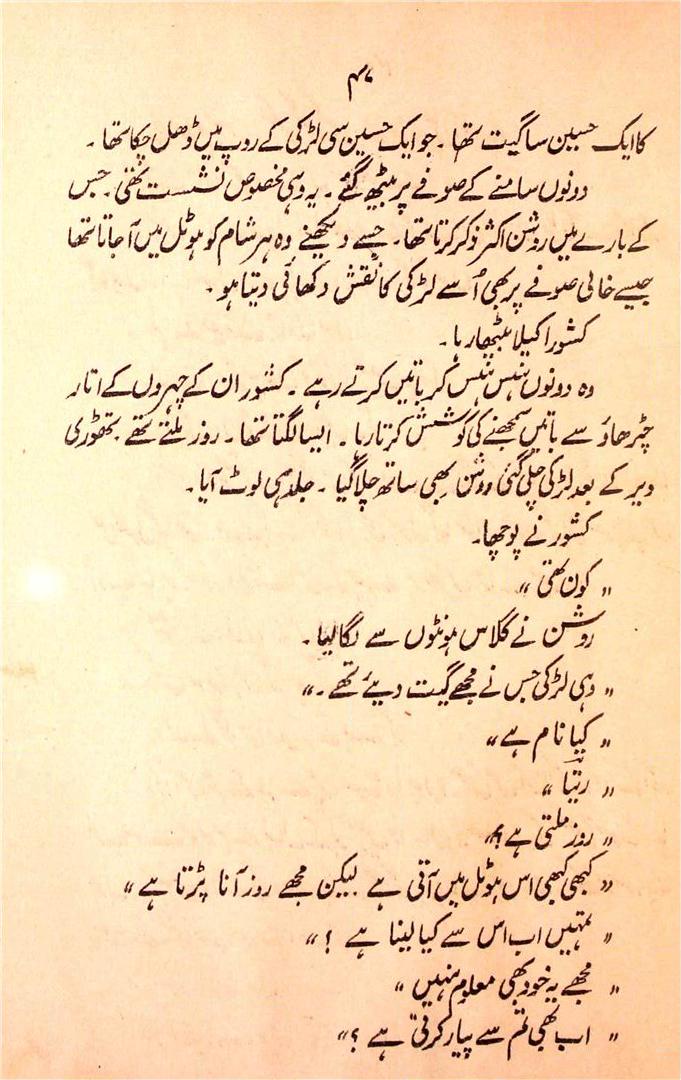 ۴۷
کا ایک حسین سا گیت تھا۔ جو ایک حسین سی لڑکی کے روپ میں ڈھل چکا تھا۔
دونوں سامنے کے صوفے پر بیٹھ گئے۔ یہ وہی مخصوص نشست تھی۔ جس
کے بارے میں روشن اکثر ذکر کرتا تھا۔ جسے دیکھنے وہ ہر شام کو ہوٹل میں آ جاتا تھا
جیسے خالی صوفے پر بھی اُسے لڑکی کا نقش دکھائی دیتا ہو۔
کشور اکیلا بیٹھا رہا۔
وہ دونوں ہنس ہنس کر باتیں کرتے رہے۔ کشور ان کے چہروں کے اتار
چڑھاؤ سے باتیں سمجھنے کی کوشش کرتا رہا۔ ایسا لگتا تھا۔ روز ملتے تھے تھوڑی
دیر کے بعد لڑکی چلی گئی روشن بھی ساتھ چلا گیا۔ جلد ہی لوٹ آیا۔
کشور نے پوچھا۔
” کون تھی “
روشن نے گلاس ہونٹوں سے لگا لیا۔
” وہی لڑکی جس نے مجھے گیت دیئے تھے۔“
” کیا نام ہے “
” ریتا “
” روز ملتی ہے؟“
” کبھی کبھی اس ہوٹل میں آتی ہے لیکن مجھے روز آنا پڑتا ہے “
” تمہیں اب اس سے کیا لینا ہے ؟ “
” مجھے یہ خود بھی معلوم نہیں “
” اب بھی تم سے پیار کرتی ہے ؟“